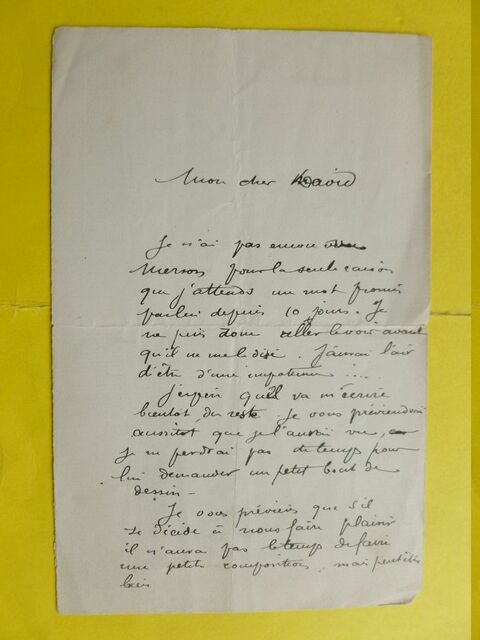 Mon cher David
Je n'ai pas encore vu
Merson pour la seule raison
que j'attends un mot promis
par lui depuis 10 jours. Je
ne puis donc aller le voir avant
qu'il ne me le dise. J'aurai l'air
d'être d'une impatience !...
J'espère qu'il va m'écrire
bientôt du reste. Je vous préviendrai
aussitôt que je l'aurai vu,
je ne perdrai pas de temps pour
lui demander un petit bout de
dessin -
Je vous préviens que s'il
se décide à nous faire plaisir
il n'aura pas le temps de faire
une petite composition, mais peut être
bien